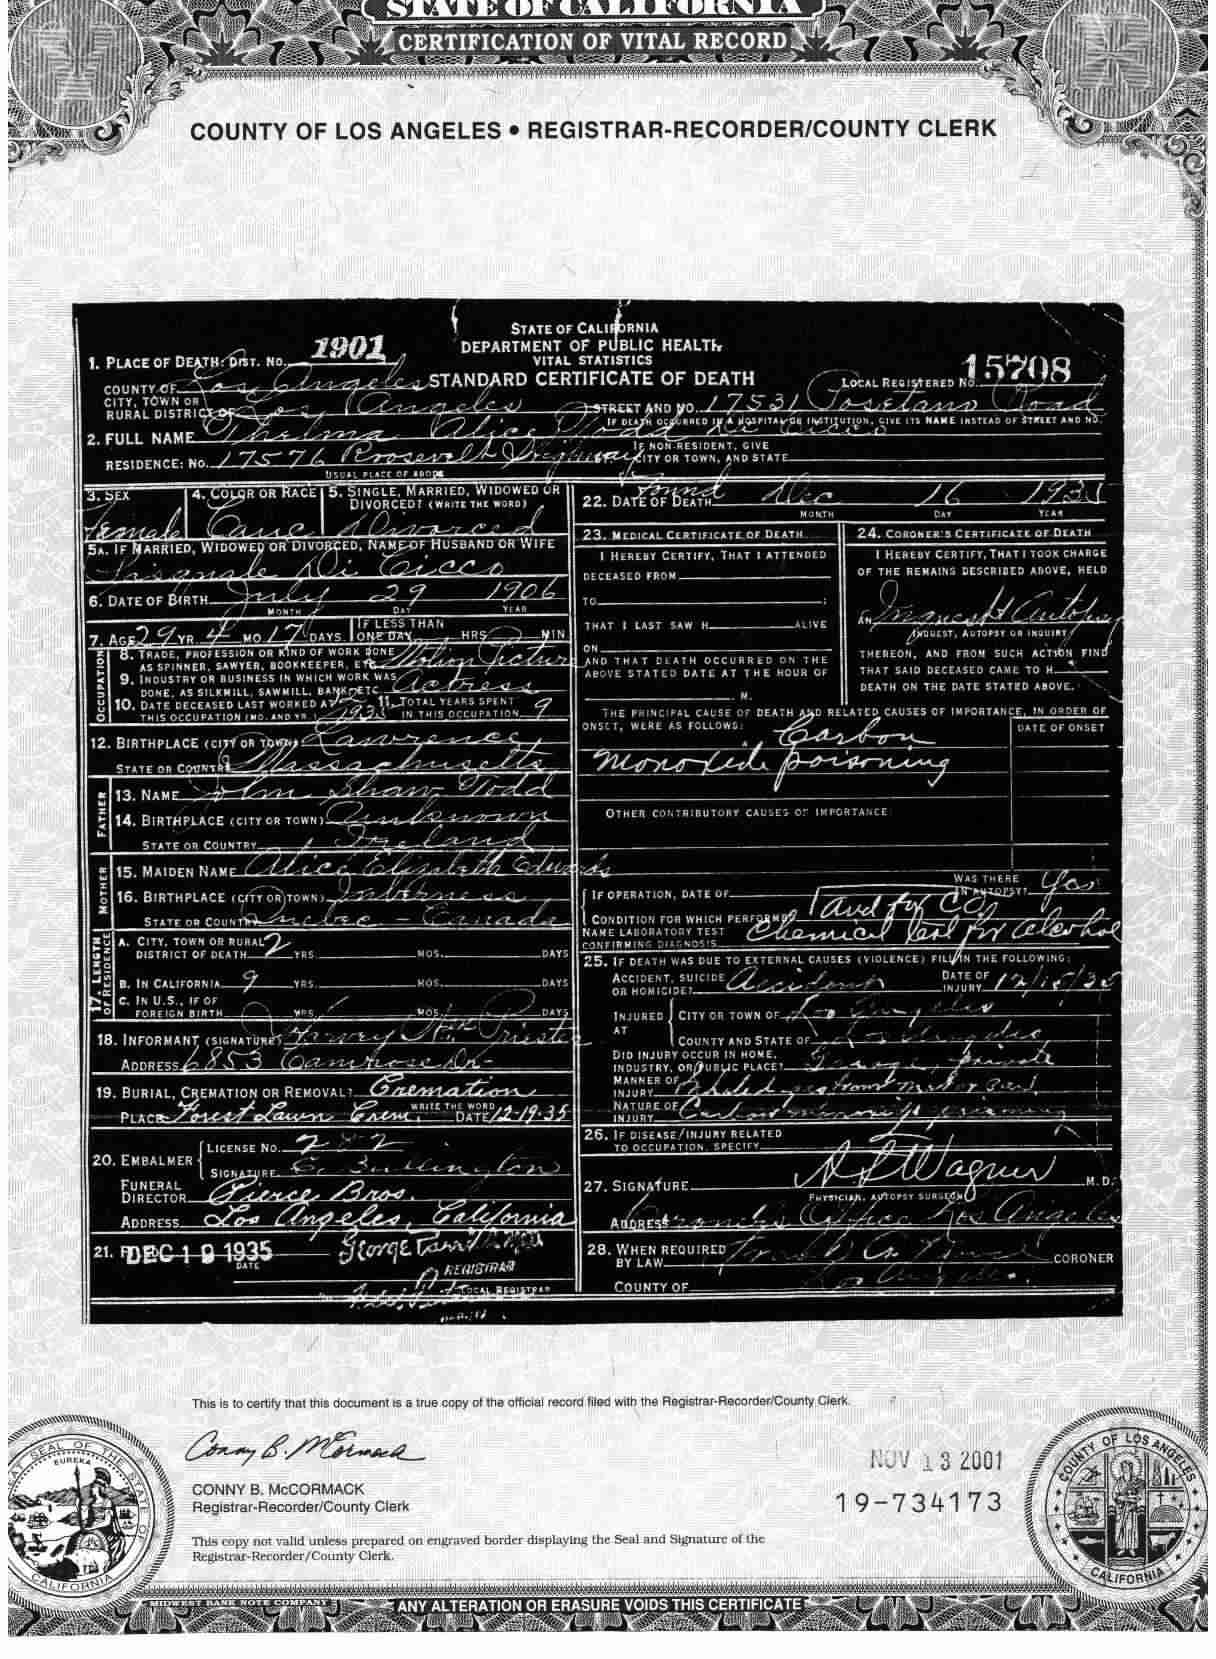 STATE OF CALIFORNIA
CERTIFICATION OF VITAL RECORD
COUNTY OF LOS ANGELES • REGISTRAR-RECORDER/COUNTY CLERK
STATE OF CALIFORNIA
DEPARTMENT OF PUBLIC HEALTH
VITAL STATISTICS
STANDARD CERTIFICATE OF DEATH
1. PLACE OF DEATH: DIST. NO. 1901
LOCAL REGISTERED NO. 15708
COUNTY OF Los Angeles
CITY, TOWN OR RURAL DISTRICT OF Los Angeles
STREET AND NO. 17531 Posetano Road
IF DEATH OCCURRED IN A HOSPITAL OR INSTITUTION, GIVE ITS NAME INSTEAD OF STREET AND NO.
2. FULL NAME Thelma Alice Todd Di Cicco
RESIDENCE: NO. 17576 Roosevelt Highway
USUAL PLACE OF ABODE
IF NON-RESIDENT, GIVE CITY OR TOWN, AND STATE
3. SEX Female
4. COLOR OR RACE Cauc
5. SINGLE, MARRIED, WIDOWED OR DIVORCED? (WRITE THE WORD) Divorced
5A. IF MARRIED, WIDOWED OR DIVORCED, NAME OF HUSBAND OR WIFE
Pasquale Di Cicco
6. DATE OF BIRTH July 29 1906
MONTH DAY YEAR
7. AGE 29 YR. 4 MO. 17 DAYS. IF LESS THAN ONE DAY HRS. MIN
OCCUPATION
8. TRADE, PROFESSION OR KIND OF WORK DONE AS SPINNER, SAWYER, BOOKKEEPER, ETC. Motion Picture
9. INDUSTRY OR BUSINESS IN WHICH WORK WAS DONE, AS SILKMILL, SAWMILL, BANK, ETC. Actress
10. DATE DECEASED LAST WORKED AT THIS OCCUPATION (MO. AND YR.) 1935
11. TOTAL YEARS SPENT IN THIS OCCUPATION 9
12. BIRTHPLACE (CITY OR TOWN) Lawrence
STATE OR COUNTRY Massachusetts
FATHER
13. NAME John Shaw Todd
14. BIRTHPLACE (CITY OR TOWN) Unknown
STATE OR COUNTRY Ireland
MOTHER
15. MAIDEN NAME Alice Elizabeth Edwards
16. BIRTHPLACE (CITY OR TOWN) Inverness
STATE OR COUNTRY Quebec - Canada
17. LENGTH OF RESIDENCE
A. CITY, TOWN OR RURAL DISTRICT OF DEATH 2 YRS. MOS. DAYS
B. IN CALIFORNIA 9 YRS. MOS. DAYS
C. IN U.S., IF OF FOREIGN BIRTH YRS. MOS. DAYS
18. INFORMANT (SIGNATURE) Harvey Priester
ADDRESS 6853 Camrose Dr
19. BURIAL, CREMATION OR REMOVAL? Cremation
WRITE THE WORD
PLACE Forest Lawn Crem. DATE 12-19-35
20. EMBALMER LICENSE NO.
SIGNATURE
FUNERAL DIRECTOR Pierce Bros.
ADDRESS Los Angeles, California
21. DEC 19 1935
DATE
George Parrish
REGISTRAR
LOCAL REGISTRAR
22. DATE OF DEATH Found Dec 16 1935
MONTH DAY YEAR
23. MEDICAL CERTIFICATE OF DEATH
I HEREBY CERTIFY, THAT I ATTENDED
DECEASED FROM
TO
THAT I LAST SAW H ALIVE
ON
AND THAT DEATH OCCURRED ON THE
ABOVE STATED DATE AT THE HOUR OF
M.
24. CORONER'S CERTIFICATE OF DEATH
I HEREBY CERTIFY, THAT I TOOK CHARGE
OF THE REMAINS DESCRIBED ABOVE, HELD
AN Inquest Autopsy
INQUEST, AUTOPSY OR INQUIRY
THEREON, AND FROM SUCH ACTION FIND
THAT SAID DECEASED CAME TO H
DEATH ON THE DATE STATED ABOVE.
THE PRINCIPAL CAUSE OF DEATH AND RELATED CAUSES OF IMPORTANCE, IN ORDER OF
ONSET, WERE AS FOLLOWS:
DATE OF ONSET
Carbon
monoxide poisoning
OTHER CONTRIBUTORY CAUSES OF IMPORTANCE
WAS THERE AN AUTOPSY? Yes
IF OPERATION, DATE OF
CONDITION FOR WHICH PERFORMED
and for CO
NAME LABORATORY TEST CONFIRMING DIAGNOSIS Chemical test for alcohol
25. IF DEATH WAS DUE TO EXTERNAL CAUSES (VIOLENCE) FILL IN THE FOLLOWING:
ACCIDENT, SUICIDE OR HOMICIDE? Accident DATE OF INJURY 12/15/35
INJURED AT CITY OR TOWN OF Los Angeles
COUNTY AND STATE OF Los Angeles
DID INJURY OCCUR IN HOME, INDUSTRY, OR PUBLIC PLACE? Garage, private
MANNER OF INJURY Inhaled gas from motor
NATURE OF INJURY Carbon monoxide poisoning
26. IF DISEASE/INJURY RELATED TO OCCUPATION, SPECIFY
27. SIGNATURE Wagner M.D.
PHYSICIAN, AUTOPSY SURGEON
ADDRESS Coroner's Office Los Angeles
28. WHEN REQUIRED BY LAW Frank A. Nance CORONER
COUNTY OF Los Angeles
This is to certify that this document is a true copy of the official record filed with the Registrar-Recorder/County Clerk.
Conny B. McCormack
CONNY B. McCORMACK
Registrar-Recorder/County Clerk
NOV 13 2001
19-734173
This copy not valid unless prepared on engraved border displaying the Seal and Signature of the
Registrar-Recorder/County Clerk.
SEAL OF THE STATE OF CALIFORNIA
EUREKA
COUNTY OF LOS ANGELES
CALIFORNIA
MIDWEST BANK NOTE COMPANY
ANY ALTERATION OR ERASURE VOIDS THIS CERTIFICATE